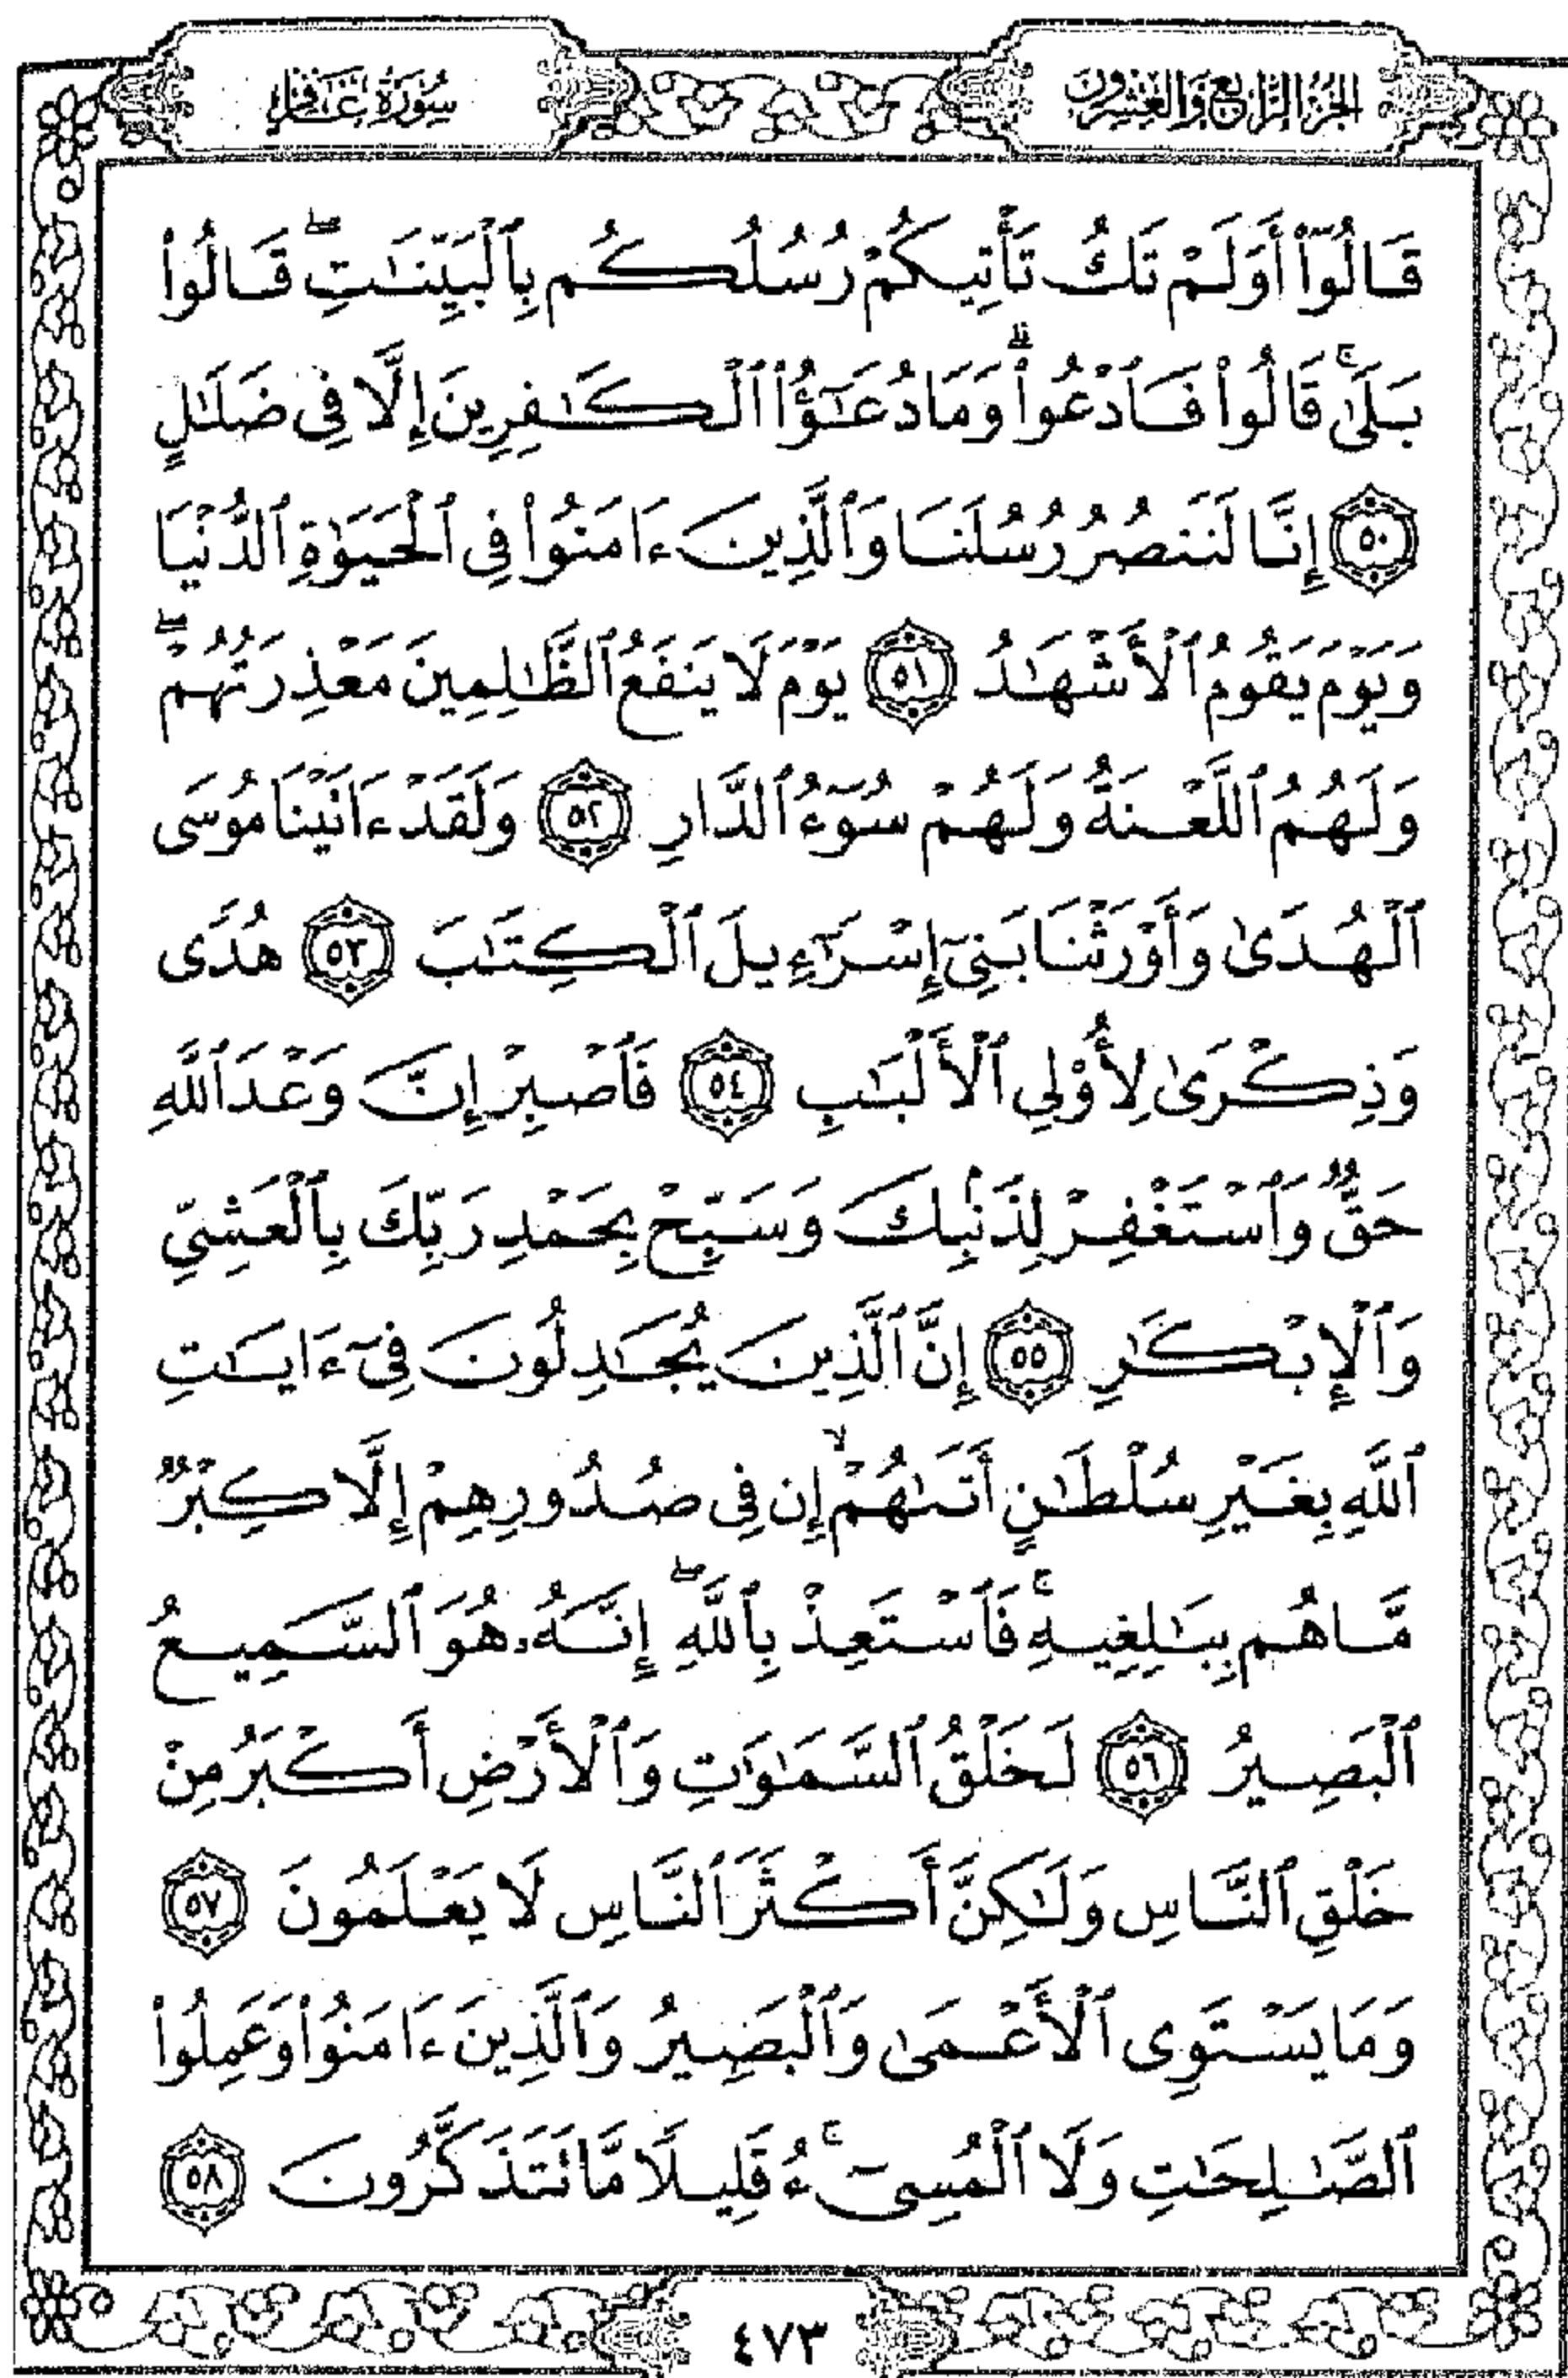 الجزء الرابع والعشرون
سورة غافر
قَالُوٓا۟ أَوَلَمْ تَكُ تَأْتِيكُمْ رُسُلُكُم بِٱلْبَيِّنَـٰتِ ۖ قَالُوا۟
بَلَىٰ ۚ قَالُوا۟ فَٱدْعُوا۟ ۗ وَمَا دُعَـٰٓؤُا۟ ٱلْكَـٰفِرِينَ إِلَّا فِى ضَلَـٰلٍ
٥٠ إِنَّا لَنَنصُرُ رُسُلَنَا وَٱلَّذِينَ ءَامَنُوا۟ فِى ٱلْحَيَوٰةِ ٱلدُّنْيَا
وَيَوْمَ يَقُومُ ٱلْأَشْهَـٰدُ ٥١ يَوْمَ لَا يَنفَعُ ٱلظَّـٰلِمِينَ مَعْذِرَتُهُمْ ۖ
وَلَهُمُ ٱللَّعْنَةُ وَلَهُمْ سُوٓءُ ٱلدَّارِ ٥٢ وَلَقَدْ ءَاتَيْنَا مُوسَى
ٱلْهُدَىٰ وَأَوْرَثْنَا بَنِىٓ إِسْرَٰٓءِيلَ ٱلْكِتَـٰبَ ٥٣ هُدًى
وَذِكْرَىٰ لِأُو۟لِى ٱلْأَلْبَـٰبِ ٥٤ فَٱصْبِرْ إِنَّ وَعْدَ ٱللَّهِ
حَقٌّ وَٱسْتَغْفِرْ لِذَنۢبِكَ وَسَبِّحْ بِحَمْدِ رَبِّكَ بِٱلْعَشِىِّ
وَٱلْإِبْكَـٰرِ ٥٥ إِنَّ ٱلَّذِينَ يُجَـٰدِلُونَ فِىٓ ءَايَـٰتِ
ٱللَّهِ بِغَيْرِ سُلْطَـٰنٍ أَتَىٰهُمْ ۙ إِن فِى صُدُورِهِمْ إِلَّا كِبْرٌ
مَّا هُم بِبَـٰلِغِيهِ ۚ فَٱسْتَعِذْ بِٱللَّهِ ۖ إِنَّهُۥ هُوَ ٱلسَّمِيعُ
ٱلْبَصِيرُ ٥٦ لَخَلْقُ ٱلسَّمَـٰوَٰتِ وَٱلْأَرْضِ أَكْبَرُ مِنْ
خَلْقِ ٱلنَّاسِ وَلَـٰكِنَّ أَكْثَرَ ٱلنَّاسِ لَا يَعْلَمُونَ ٥٧
وَمَا يَسْتَوِى ٱلْأَعْمَىٰ وَٱلْبَصِيرُ وَٱلَّذِينَ ءَامَنُوا۟ وَعَمِلُوا۟
ٱلصَّـٰلِحَـٰتِ وَلَا ٱلْمُسِىٓءُ ۚ قَلِيلًا مَّا تَتَذَكَّرُونَ ٥٨
٤٧٣